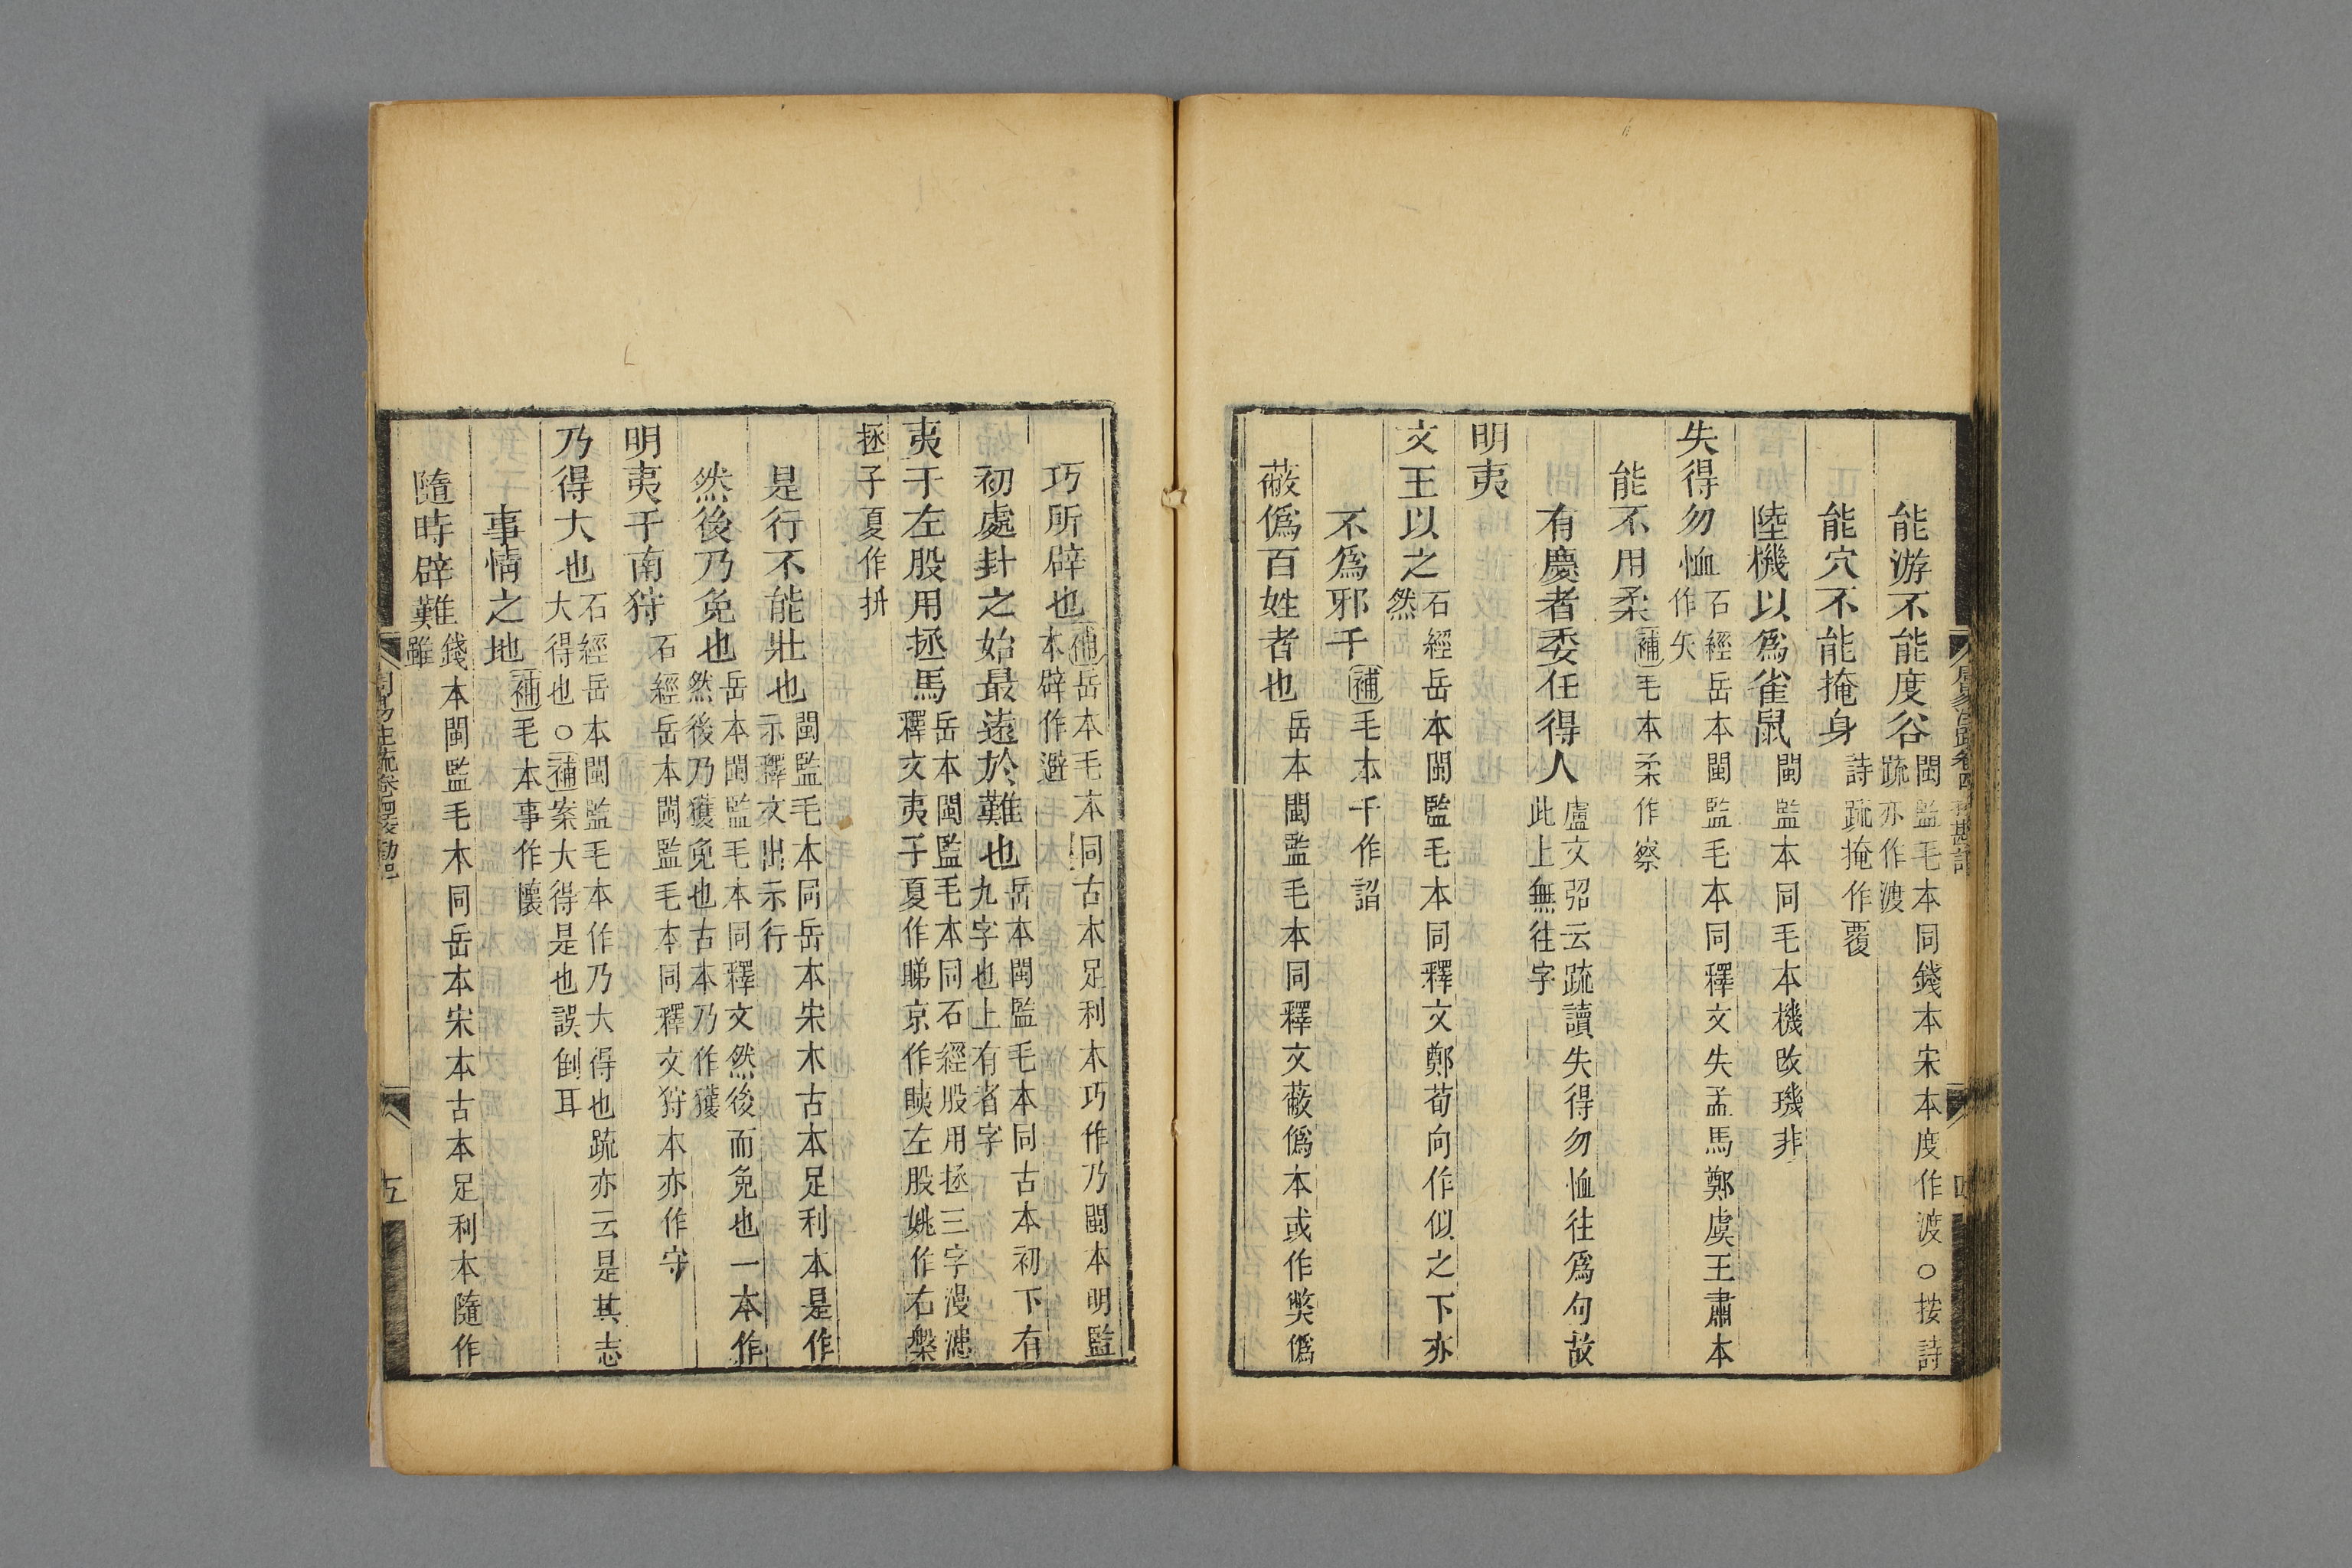 能游不能度谷閩監毛本同錢本宋本度作渡○按詩疏亦作渡
能穴不能掩身詩疏掩作覆
陸機以爲雀鼠閩監本同毛本機改璣非
失得勿恤石經岳本閩監毛本同釋文失孟馬鄭虞王肅本作矢
能不用柔補毛本柔作察
有慶者委任得人盧文弨云疏讀失得勿恤往爲句故此上無往字
明夷
文王以之石經岳本閩監毛本同釋文鄭荀向作似之下亦然
不爲邪千補毛本千作諂
蔽僞百姓者也岳本閩監毛本同釋文蔽僞本或作弊僞
周易注疏卷四校勘記
四
巧所辟也補岳本毛本同古本足利本巧作乃閩本明監本辟作避
初處卦之始最遠於難也岳本閩監毛本同古本初下有九字也上有者字
夷于左股用拯馬岳本閩監毛本同石經股用拯三字漫漶釋文夷子夏作睇京作眱左股姚作右槃
拯子夏作抍
是行不能壯也閩監毛本同岳本宋本古本足利本是作示釋文出示行
然後乃免也岳本閩監毛本同釋文然後而免也一本作然後乃獲免也古本乃作獲
明夷于南狩石經岳本閩監毛本同釋文狩本亦作守
乃得大也石經岳本閩監毛本作乃大得也疏亦云是其志大得也○補案大得是也誤倒耳
事情之地補毛本事作懷
隨時辟難錢本閩監毛本同岳本宋本古本足利本隨作雖
周易注疏卷四校勘記
五